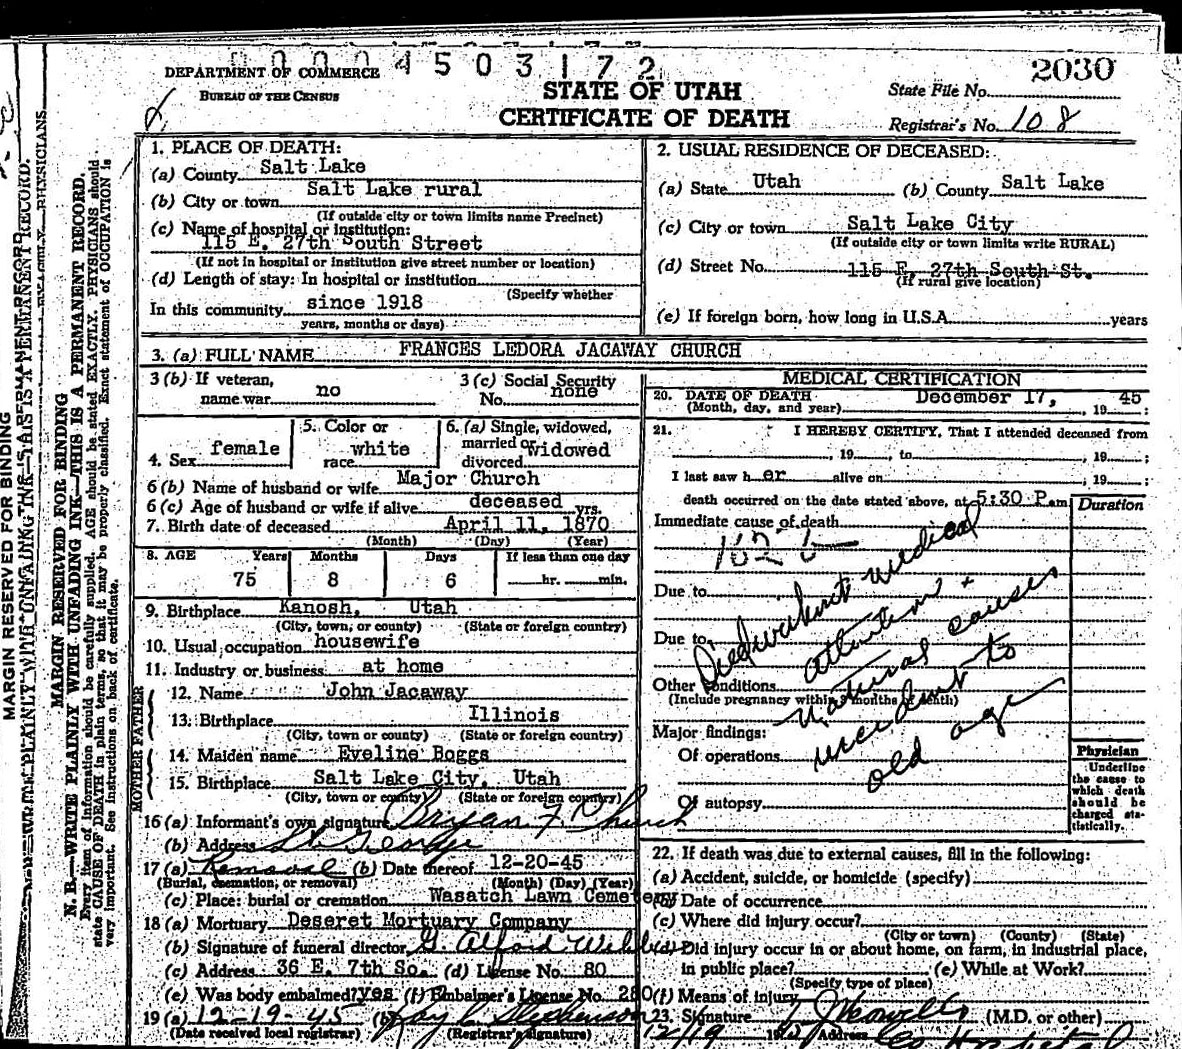 0000 4503172
DEPARTMENT OF COMMERCE
BUREAU OF THE CENSUS
STATE OF UTAH
CERTIFICATE OF DEATH
2030
State File No.
Registrar's No. 108
MARGIN RESERVED FOR BINDING
MARGIN RESERVED FOR BINDING
N. B.—WRITE PLAINLY WITH UNFADING INK—THIS IS A PERMANENT RECORD.
Every item of information should be carefully supplied. AGE should be stated EXACTLY. PHYSICIANS should
state CAUSE OF DEATH in plain terms, so that it may be properly classified. Exact statement of OCCUPATION is
very important. See instructions on back of certificate.
1. PLACE OF DEATH:
(a) County Salt Lake
(b) City or town Salt Lake rural
(If outside city or town limits name Precinct)
(c) Name of hospital or institution:
115 E. 27th South Street
(If not in hospital or institution give street number or location)
(d) Length of stay: In hospital or institution
(Specify whether
In this community since 1918
years, months or days)
2. USUAL RESIDENCE OF DECEASED:
(a) State Utah (b) County Salt Lake
(c) City or town Salt Lake City
(If outside city or town limits write RURAL)
(d) Street No. 115 E. 27th South St.
(If rural give location)
(e) If foreign born, how long in U.S.A. years
3. (a) FULL NAME FRANCES LEDORA JACAWAY CHURCH
3 (b) If veteran,
name war no
3 (c) Social Security
No. none
4. Sex female
5. Color or
race white
6. (a) Single, widowed,
married or
divorced widowed
6 (b) Name of husband or wife Major Church
6 (c) Age of husband or wife if alive deceased yrs.
7. Birth date of deceased April 11, 1870
(Month) (Day) (Year)
8. AGE Years Months Days If less than one day
75 8 6 hr. min.
9. Birthplace Kanosh, Utah
(City, town, or county) (State or foreign country)
10. Usual occupation housewife
11. Industry or business at home
FATHER
12. Name John Jacaway
13. Birthplace Illinois
(City, town or county) (State or foreign country)
MOTHER
14. Maiden name Eveline Boggs
15. Birthplace Salt Lake City, Utah
(City, town or county) (State or foreign country)
16 (a) Informant's own signature Bryan F. Church
(b) Address St. George
17 (a) Removal (b) Date thereof 12-20-45
(Burial, cremation, or removal) (Month) (Day) (Year)
(c) Place: burial or cremation Wasatch Lawn Cemetery
18 (a) Mortuary Deseret Mortuary Company
(b) Signature of funeral director G. Alford
(c) Address 36 E. 7th So. (d) License No. 80
(e) Was body embalmed? yes (f) Embalmer's License No. 280
19 (a) 12-19-45 (b)
(Date received local registrar) (Registrar's signature)
MEDICAL CERTIFICATION
20. DATE OF DEATH December 17, 1945;
(Month, day, and year)
21. I HEREBY CERTIFY, That I attended deceased from
, 19 , to , 19 ;
I last saw her alive on , 19 ;
death occurred on the date stated above, at 5:30 P.m
Duration
Immediate cause of death
162 b
Due to
Due to
Died without medical
attention +
natural causes
incident to
old age
Other conditions
(Include pregnancy within 3 months of death)
Major findings:
Of operations
Of autopsy
Physician
Underline
the cause to
which death
should be
charged sta-
tistically.
22. If death was due to external causes, fill in the following:
(a) Accident, suicide, or homicide (specify)
(b) Date of occurrence
(c) Where did injury occur?
(City or town) (County) (State)
(d) Did injury occur in or about home, on farm, in industrial place,
in public place? (e) While at Work?
(Specify type of place)
(f) Means of injury
23. Signature (M.D. or other)
12/19 Address Co Hospital